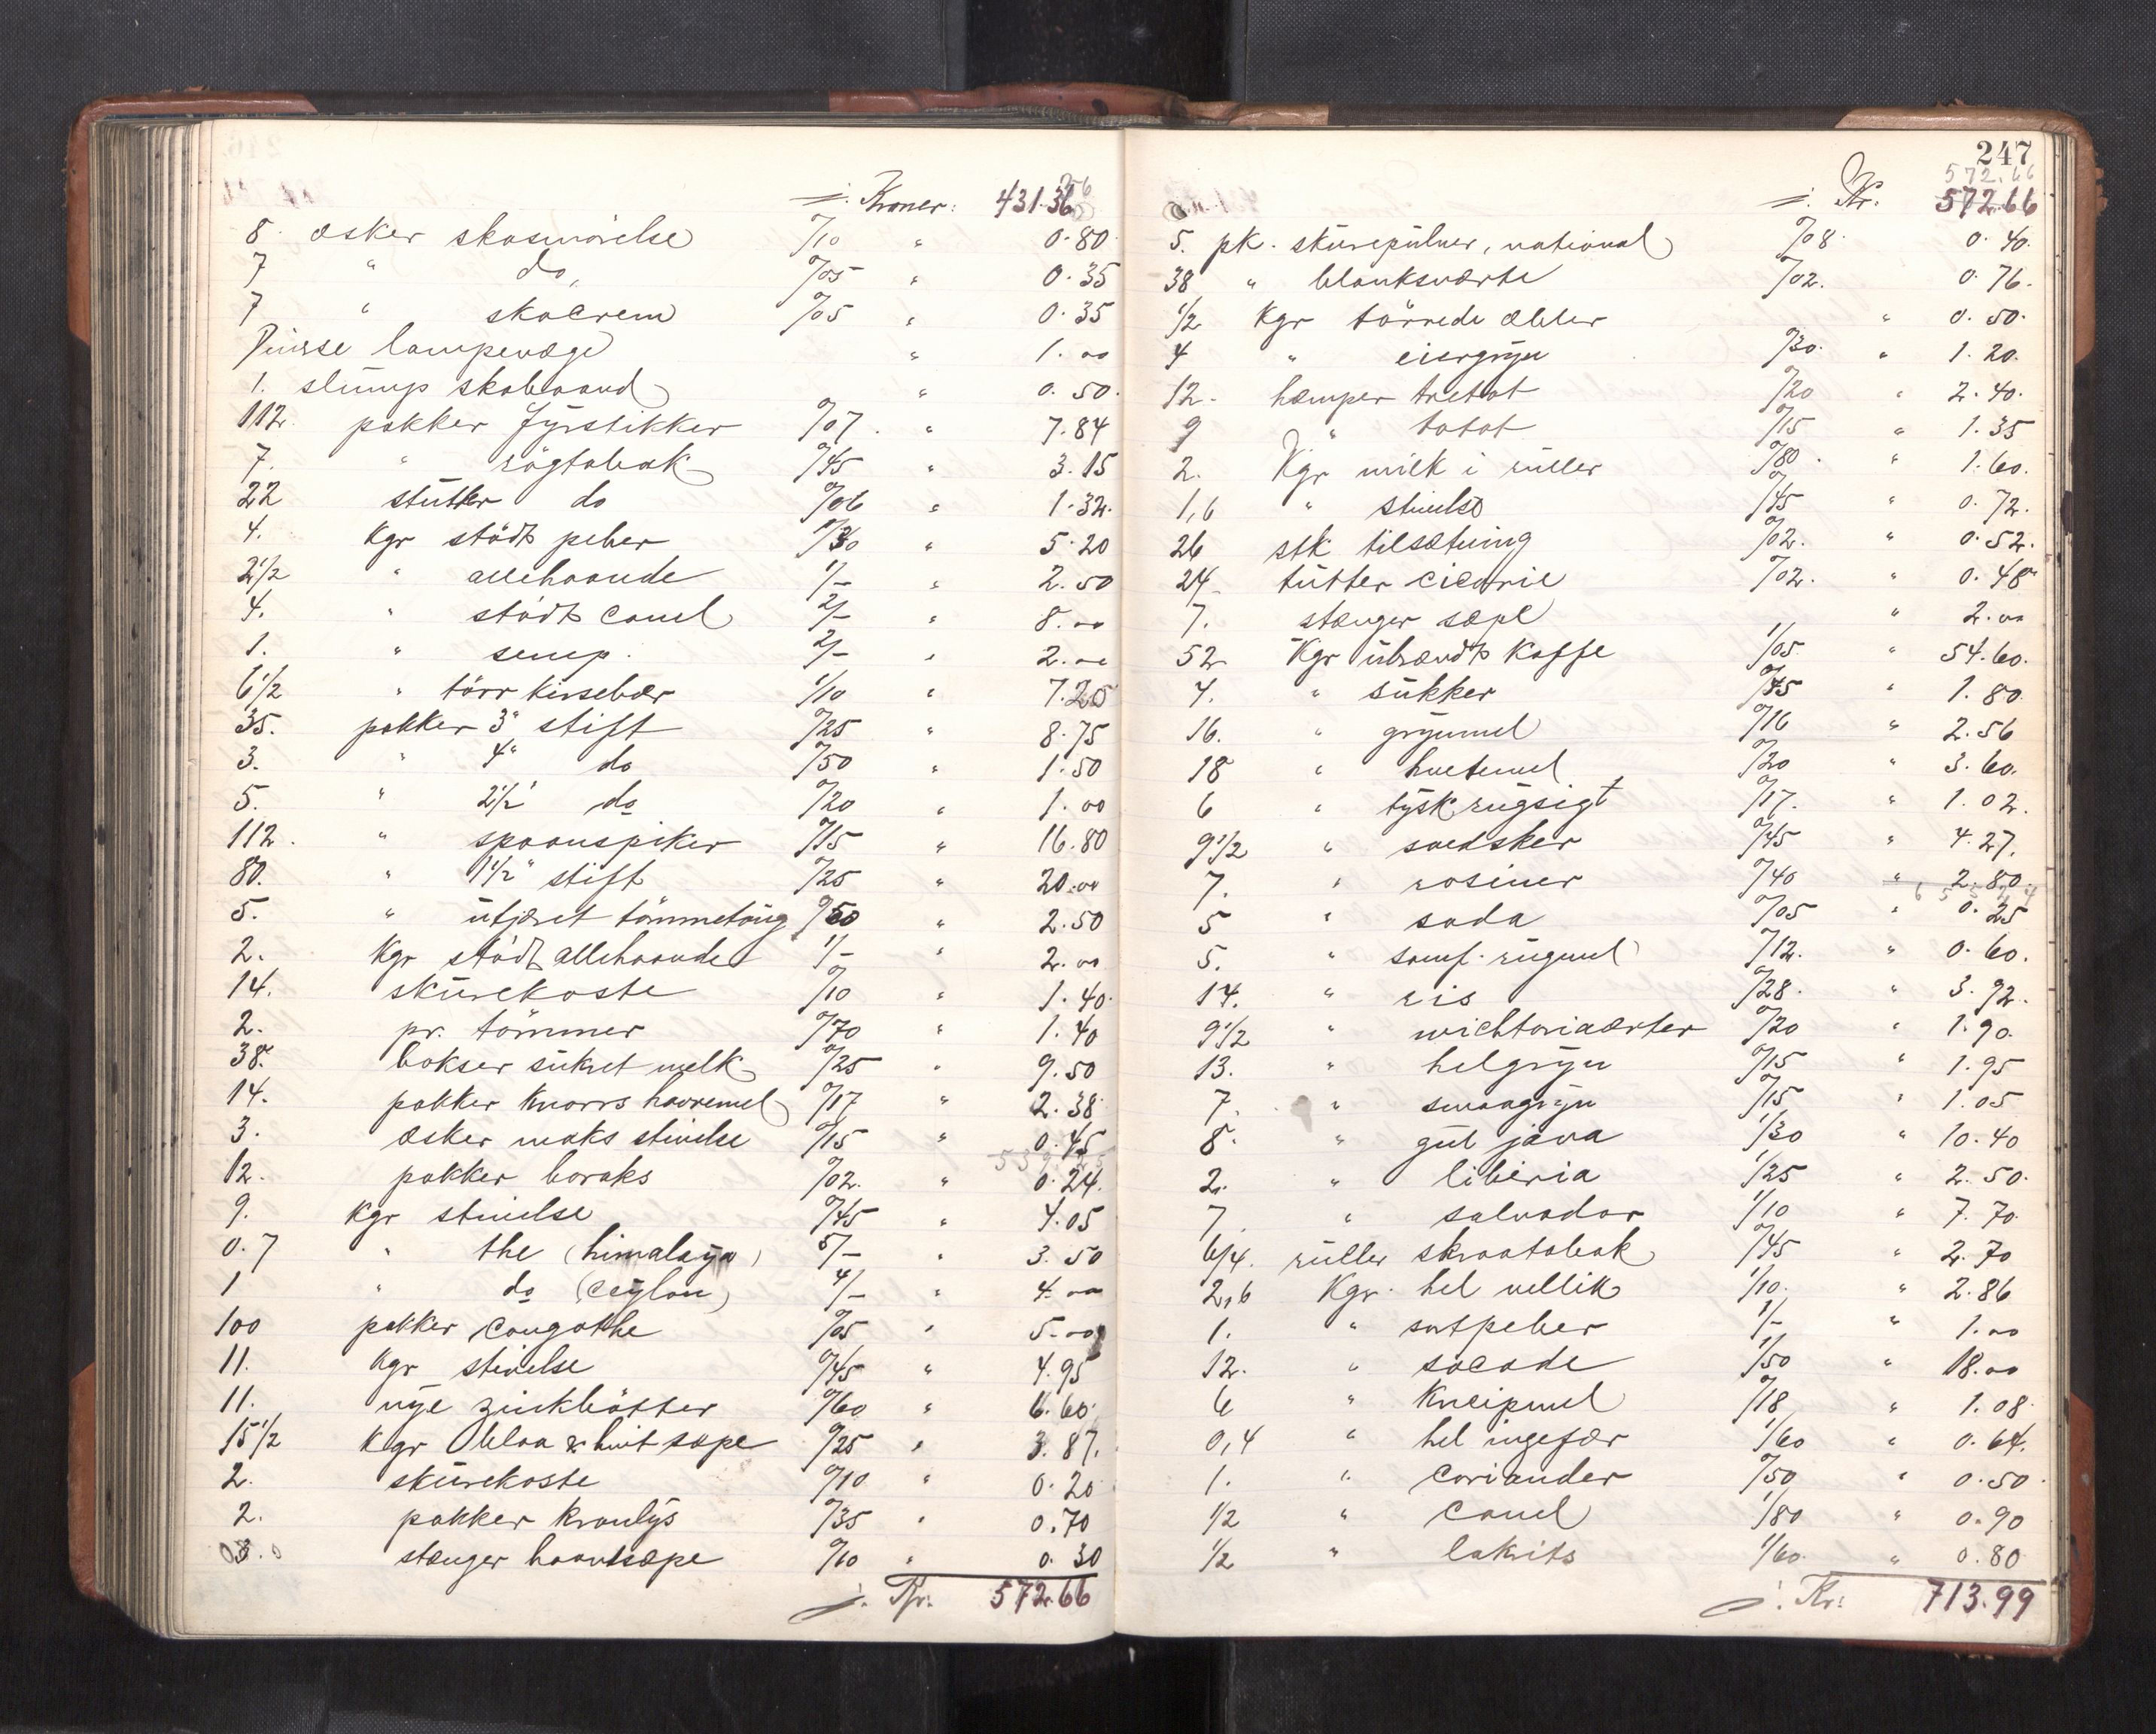 ÷ Kroner: 431.36
8 æsker skosmörelse 0/10 " 0.80
7 " do, 0/05 " 0.35
7 " skocrem 0/05 " 0.35
Diverse lampevæge " 1.00
1. slump skobaand " 0.50
112 pakker fyrstikker 0/07 " 7.84
7. " rögtobak 0/45 " 3.15
22 stutter do 0/06 " 1.32
4. Kgr stödt peber 1/30 " 5.20
2 1/2 " allehaande 1/- " 2.50
4. " stödt canel 2/- " 8.00
1. " senep. 2/- " 2.00
6 1/2 " törr kirsebær 1/10 " 7.25
35. pakker 3" stift 0/25 " 8.75
3. " 4" do 0/50 " 1.50
5. " 2 1/2" do 0/20 " 1.00
112. " spaanspiker 0/15 " 16.80
80. " 1 1/2" stift 0/25 " 20.00
5. " tömmetöug 0/50 " 2.50
2. Kgr stödt allehaande 1/- " 2.00
14. skurekoste 0/10 " 1.40
2. pr. tömmer 0/70 " 1.40
38. bokser sukret melk 0/25 " 9.50
14. pakker Knorrs havremel 0/17 " 2.38
3. æsker maks stivelse 0/15 " 0.45
12. pakker boraks 0/02. " 0.24
9. Kgr stivelse 0/45 " 4.05
0.7 " the (himalaya) 5/- " 3.50
1 " do (ceylon) 4/- " 4.00
100 pakker congothe 0/05 " 5.00
11. Kgr stivelse 0/45 " 4.95
11. nye zinkbötter 0/60 " 6.60
15 1/2 Kgr blaa & hvit sæpe 0/25 " 3.87.
2. skurekoste 0/10 " 0.20
2. pakker kronlys 0/35 " 0.70
3. stænger haandsæpe 0/10 " 0.30
÷. Kr. 572.66
247
572.66
÷. Kr. 572.66
5. pk. skurepulver, national 0/08. 0.40.
38 " blanksværte 0/02. 0.76.
1/2 Kgr törrede æbler " 0.50.
4 " eiergryn 0/30. " 1.20.
12. hæmper tretot 0/20 " 2.40.
9 " totot 0/15 " 1.35
2. Kgr milk i ruller 0/80. " 1.60.
1,6 " stivelse 0/45 " 0.72.
26 stk tilsætning 0/02. " 0.52.
24 tutter cicorie 0/02. " 0.48
7. stænger sæpe " 2.00
52 Kgr ubrændt Kaffe 1/05 " 54.60.
4. " sukker 0/45 " 1.80.
16. " grynmel 0/16 " 2.56
18 " hvetemel 0/20 " 3.60.
6 " tysk rugsigt 0/17. " 1.02.
9 1/2 " svedsker 0/45 " 4.27.
7. " rosiner 0/40 " 2.80.
5 " soda 0/05 " 0.25
5. " samf. rugmel 0/12. " 0.60.
14. " ris 0/28. " 3.92.
9 1/2 " wichtoriaærter 0/20 " 1.90.
13. " helgryn 0/15 " 1.95
7. " smaagryn 0/15 " 1.05
8. " gul java 1/30 " 10.40
2. " liberia 1/25 " 2.50.
7. " salvador 1/10 " 7.70
6/4. ruller skraatobak 0/45 " 2.70
2,6 Kgr. hel nellik 1/10. " 2.86
1. " sortpeber 1/- " 1.00
12. " socade 1/50 " 18.00
6 " Kneipmel 0/18 " 1.08
0,4 " hel ingefær 1/60 " 0.64.
1. " coriander 0/50 " 0.50.
1/2 " canel 1/80 " 0.90
1/2 " lakrits 1/60 " 0.80
÷. Kr: 713.99